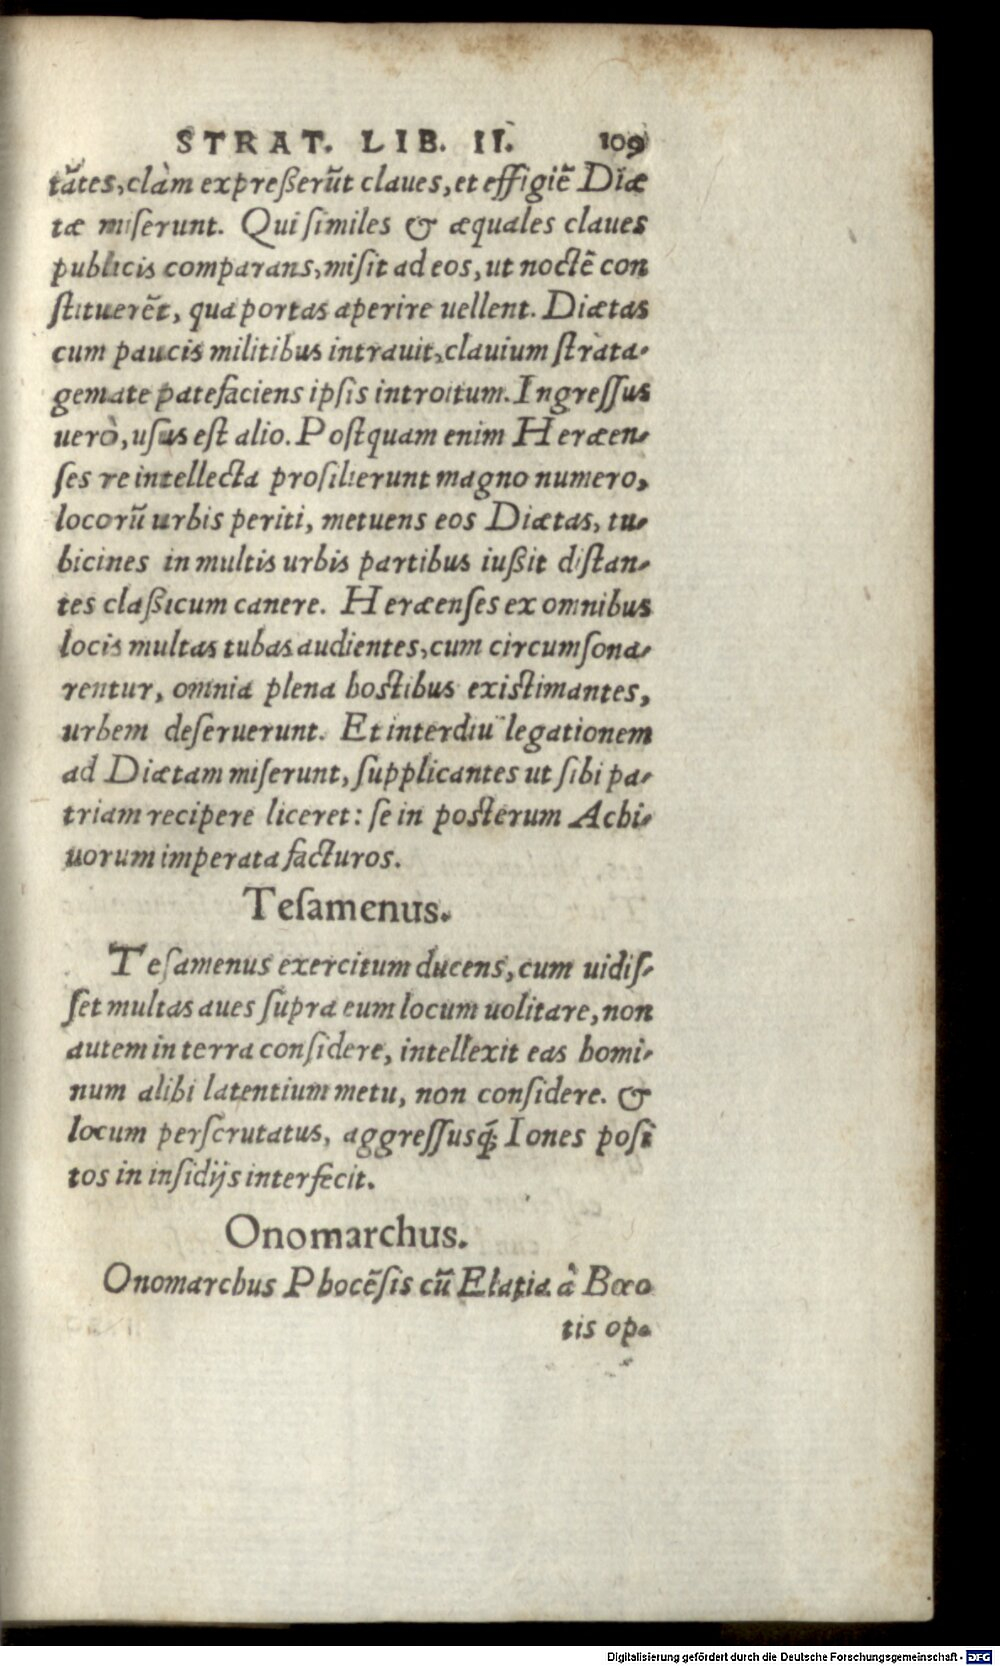 STRAT. LIB. II. 109
tātes, clàm expreßerūt claues, et effigiē Diæ
tæ miserunt. Qui similes & æquales claues
publicis comparans, misit ad eos, ut noctē con
stituerēt, qua portas aperire uellent. Diætas
cum paucis militibus intrauit, clauium strata-
gemate patefaciens ipsis introitum. Ingressus
uerò, usus est alio. Postquam enim Heræen-
ses re intellecta prosilierunt magno numero,
locorū urbis periti, metuens eos Diætas, tu-
bicines in multis urbis partibus iußit distan-
tes claßicum canere. Heræenses ex omnibus
locis multas tubas audientes, cum circumsona-
rentur, omnia plena hostibus existimantes,
urbem deseruerunt. Et interdiu legationem
ad Diætam miserunt, supplicantes ut sibi pa-
triam recipere liceret: se in posterum Achi-
uorum imperata facturos.
Tesamenus.
Tesamenus exercitum ducens, cum uidis-
set multas aues supra eum locum uolitare, non
autem in terra considere, intellexit eas homi-
num alibi latentium metu, non considere. &
locum perscrutatus, aggressusq́; Iones posi
tos in insidijs interfecit.
Onomarchus.
Onomarchus Phocēsis cū Elatia à Bœo
tis op-
Digitalisierung gefördert durch die Deutsche Forschungsgemeinschaft - DFG